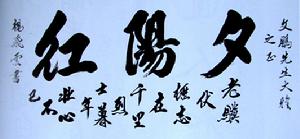 文鵬先生大雅
之正
夕陽紅
老驥
伏
櫪志
在
千里
烈
士暮
年
壯心
不
已